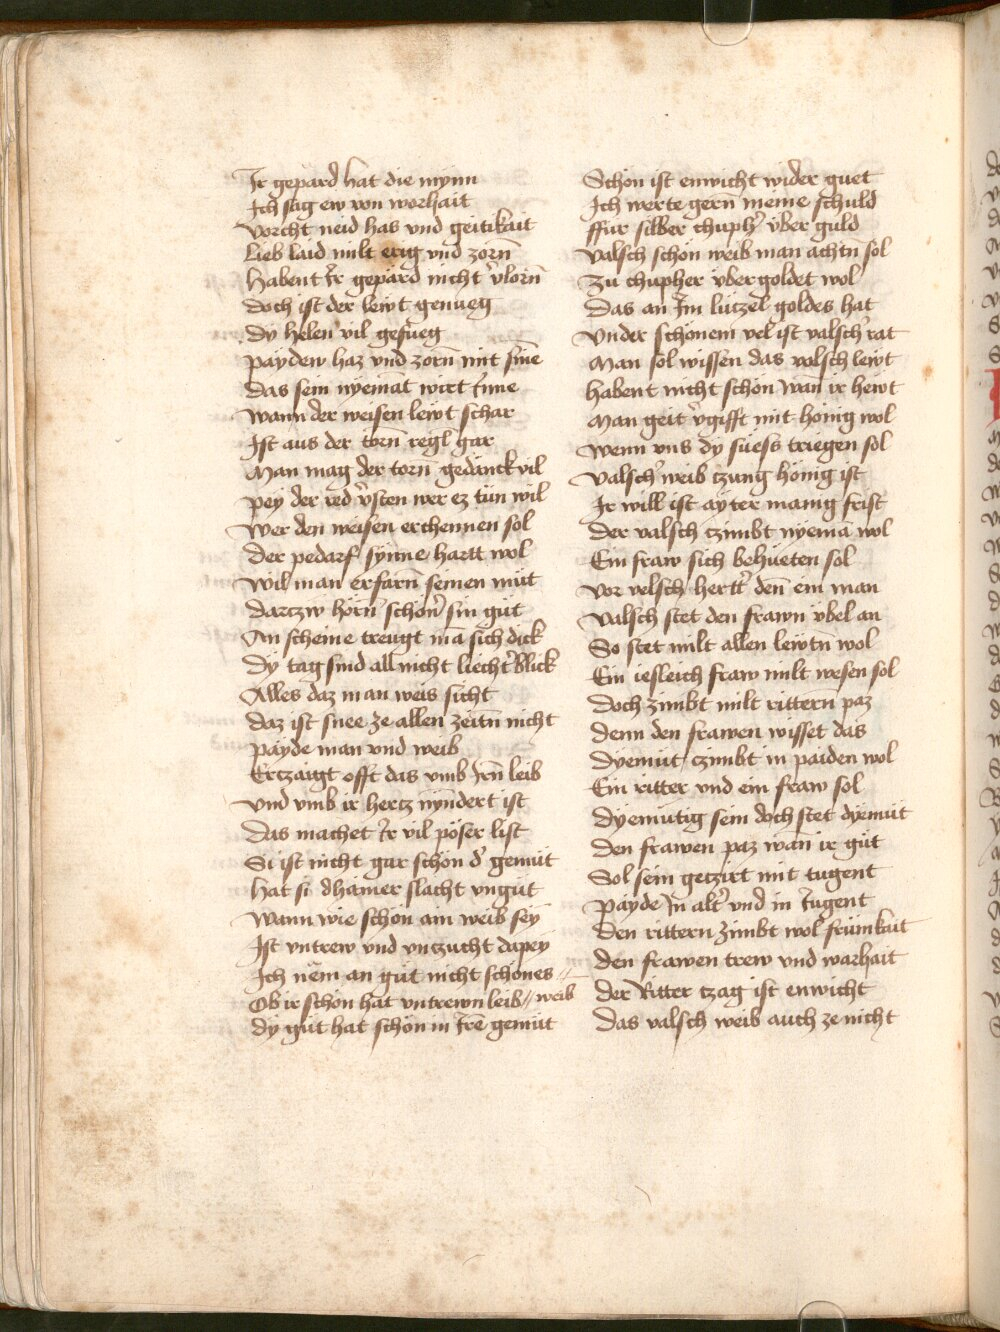 Ir gepärd hat die mynn
Ich sag ew von worhait
Vorcht neid has vnd geitikait
Lieb laid milt erig vnd zorn̄
Habent ir gepärd nicht v̉lorn̄
Doch ist der lewt genueg
Dy helen vil gefueg
Payden haz vnd zorn̄ mit sīne
Das sein nyemāt wirt inne
Wann der weisen lewt schar
Ist aus der torn̄ regl gar
Man mag der torn̄ gedänck vil
Pey der red v̉sten wer ez tün wil
Wer den weisen erchennen sol
Der pedarf synne hartt wol
Wil man erfarn̄ seinen müt
Darczw hörn̄ schon̉ sin güt
An scheine treugt mā sich dick
Dy tag sind all nicht liecht̉ blick
Alles daz man weis sicht
Daz ist snee ze allen zeitn̄ nicht
Payde man vnd weib
Erczaigt offt das vmb irn̄ leib
Vnd vmb ir hercz nyndert ist
Das machet ir vil pöser list
Si ist nicht gar schön d̉ gemüt
Hat si dhainer slacht vngüt
Wann wie schön ain weib sey
Ist vntrew vnd vnzucht dapey
Ich nēm an güt nicht schönes // weib
Ob ir schön hat vntrewn leib
Dy güt hat schön in irē gemüt
Schön ist enwicht wider guet
Ich werte gern meine schuld
ffür silber chuph̉ über guld
Valsch schön weib man achtn̄ sol
Zu chupher übergoldet wol
Das an im lützel goldes hat
Vnder schönem vel ist valsch̉ rat
Man sol wissen das valsch lewt
Habent nicht schön wan ir hewt
Man geit v̉gifft mit honig wol
Wenn vns dy süess triegen sol
Valsch̉ weib czung hönig ist
Ir will ist ayter manig frist
Der valsch czimbt nyemā wol
Ein fraw sich behüeten sol
Vor velsch hertt̉ den̄ ein man
Valsch stet den frawn übel an
So stet milt allen lewtn̄ wol
Ein iesleich fraw milt wesen sol
Doch zimbt milt rittern̄ paz
Denn den frawen wisset das
Dyemüt czimbt in paiden wol
Ein ritter vnd ein fraw sol
Dyemütig sein doch stet dyemüt
Den frawen paz wan ir güt
Sol sein geczirt mit tugent
Payde in alt̉ vnd in iugent
Den rittern zimbt wol frümkait
Den frawen trew vnd warhait
Der Ritter czag ist enwicht
Das valsch weib auch ze nicht